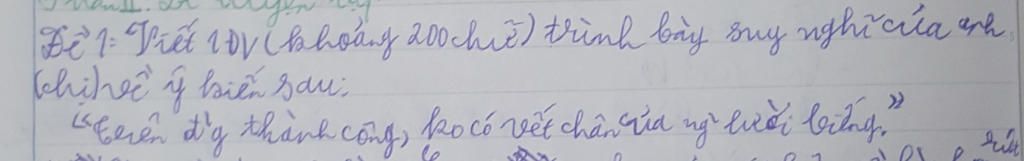 Phần II.
Đề 1: Viết 1ĐV (khoảng 200 chữ) trình bày suy nghĩ của anh
(chị) về ý kiến sau:
"trên đg thành công, ko có vết chân của ng lười biếng."